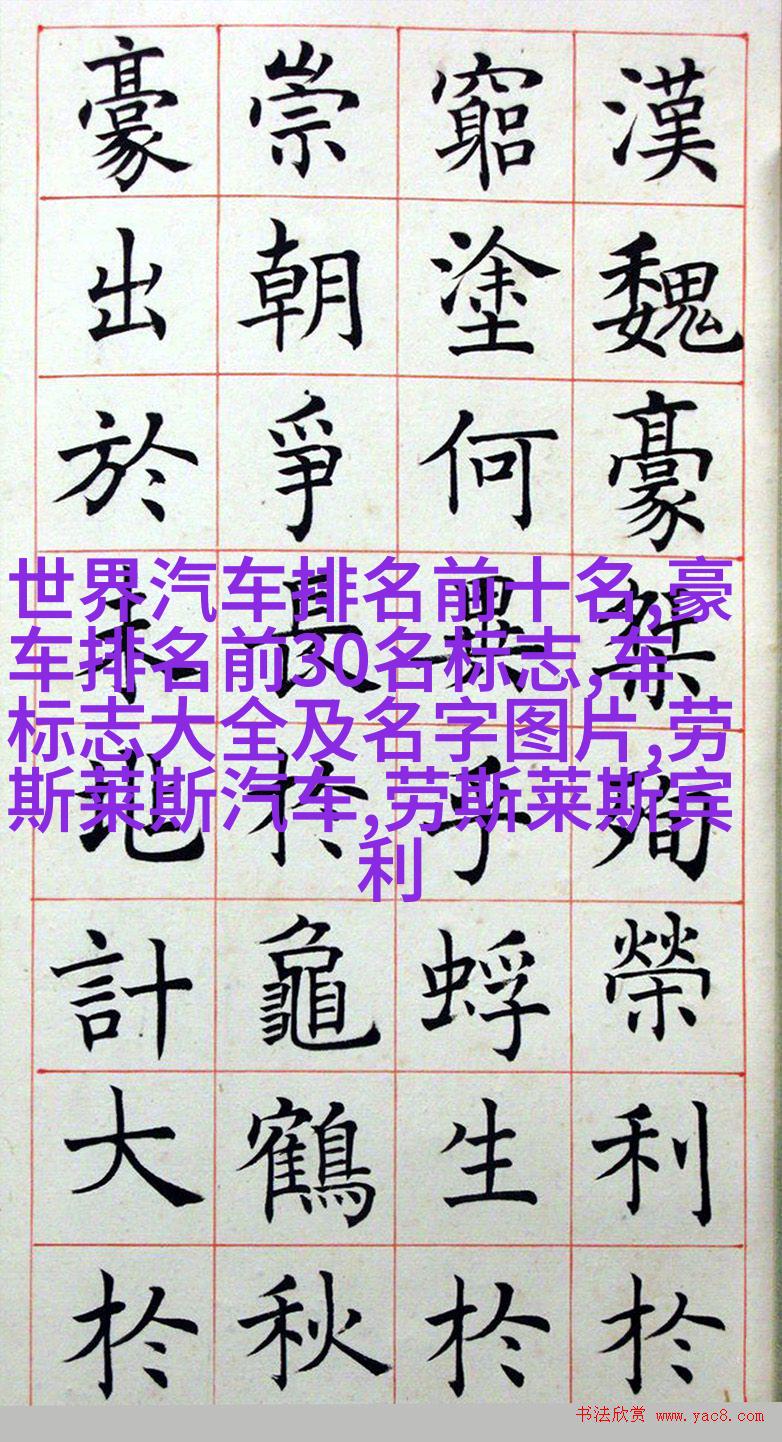 漢魏豪桀殉榮利於
窮塗何異乎蜉生於
崇朝爭長於龜鶴秋
豪出於未計大於
世界汽车排名前十名,豪
车排名前30名标志,车
标志大全及名字图片,劳
斯莱斯汽车,劳斯莱斯宾
利
书法欣赏 www.yac8.com